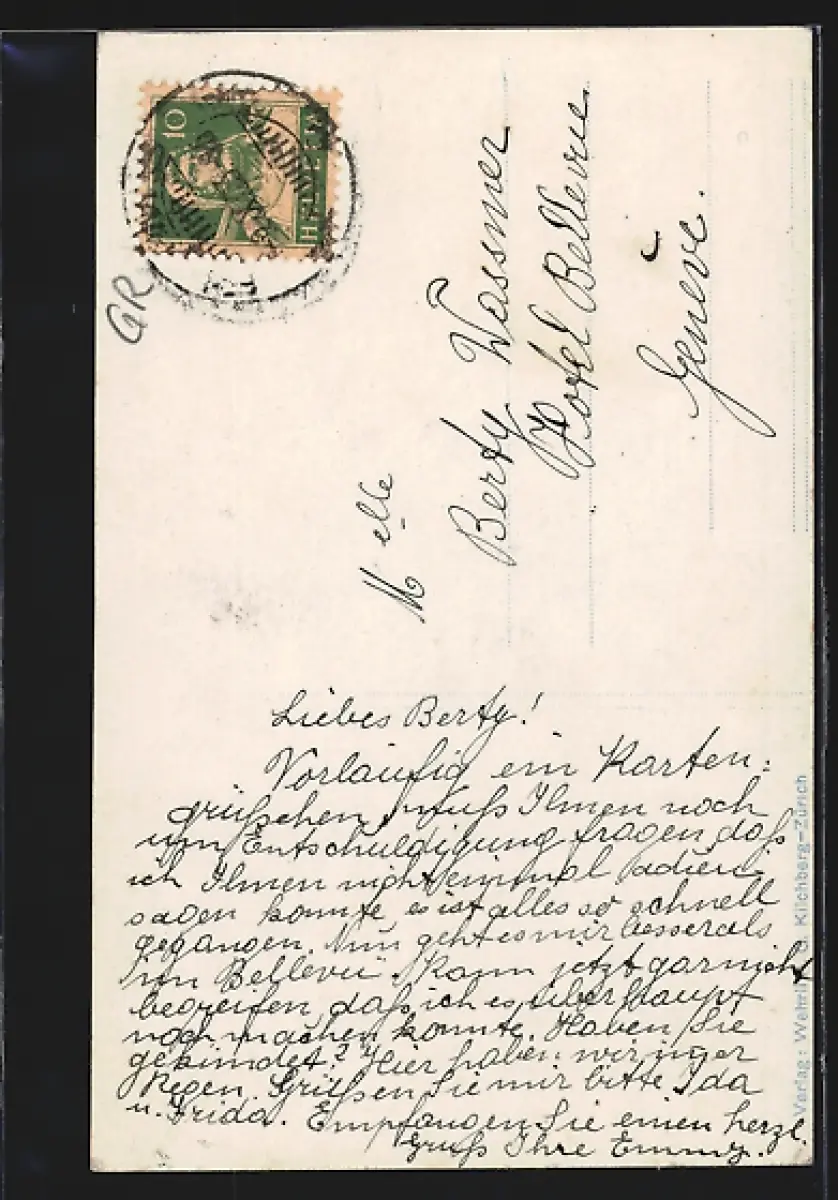 10
HELVETIA
GR
Melle
Berty Wassmer
Hotel Bellevue
Genève.
Liebes Berty!
Vorläufig ein Karten=
grüßchen, muß Ihnen noch
um Entschuldigung fragen daß
ich Ihnen nicht einmal adieu
sagen konnte es ist alles so schnell
gegangen. Nun geht es mir besser als
im Bellevü. Kann jetzt gar nicht
begreifen daß ich es überhaupt
noch machen konnte. Haben Sie
gekündet? Hier haben wir
Regen. Grüßen Sie mir bitte Ida
u. Frida. Empfangen Sie einen herzl.
Gruß Ihre Emmy.
Verlag: Wehrli Kilchberg-Zürich